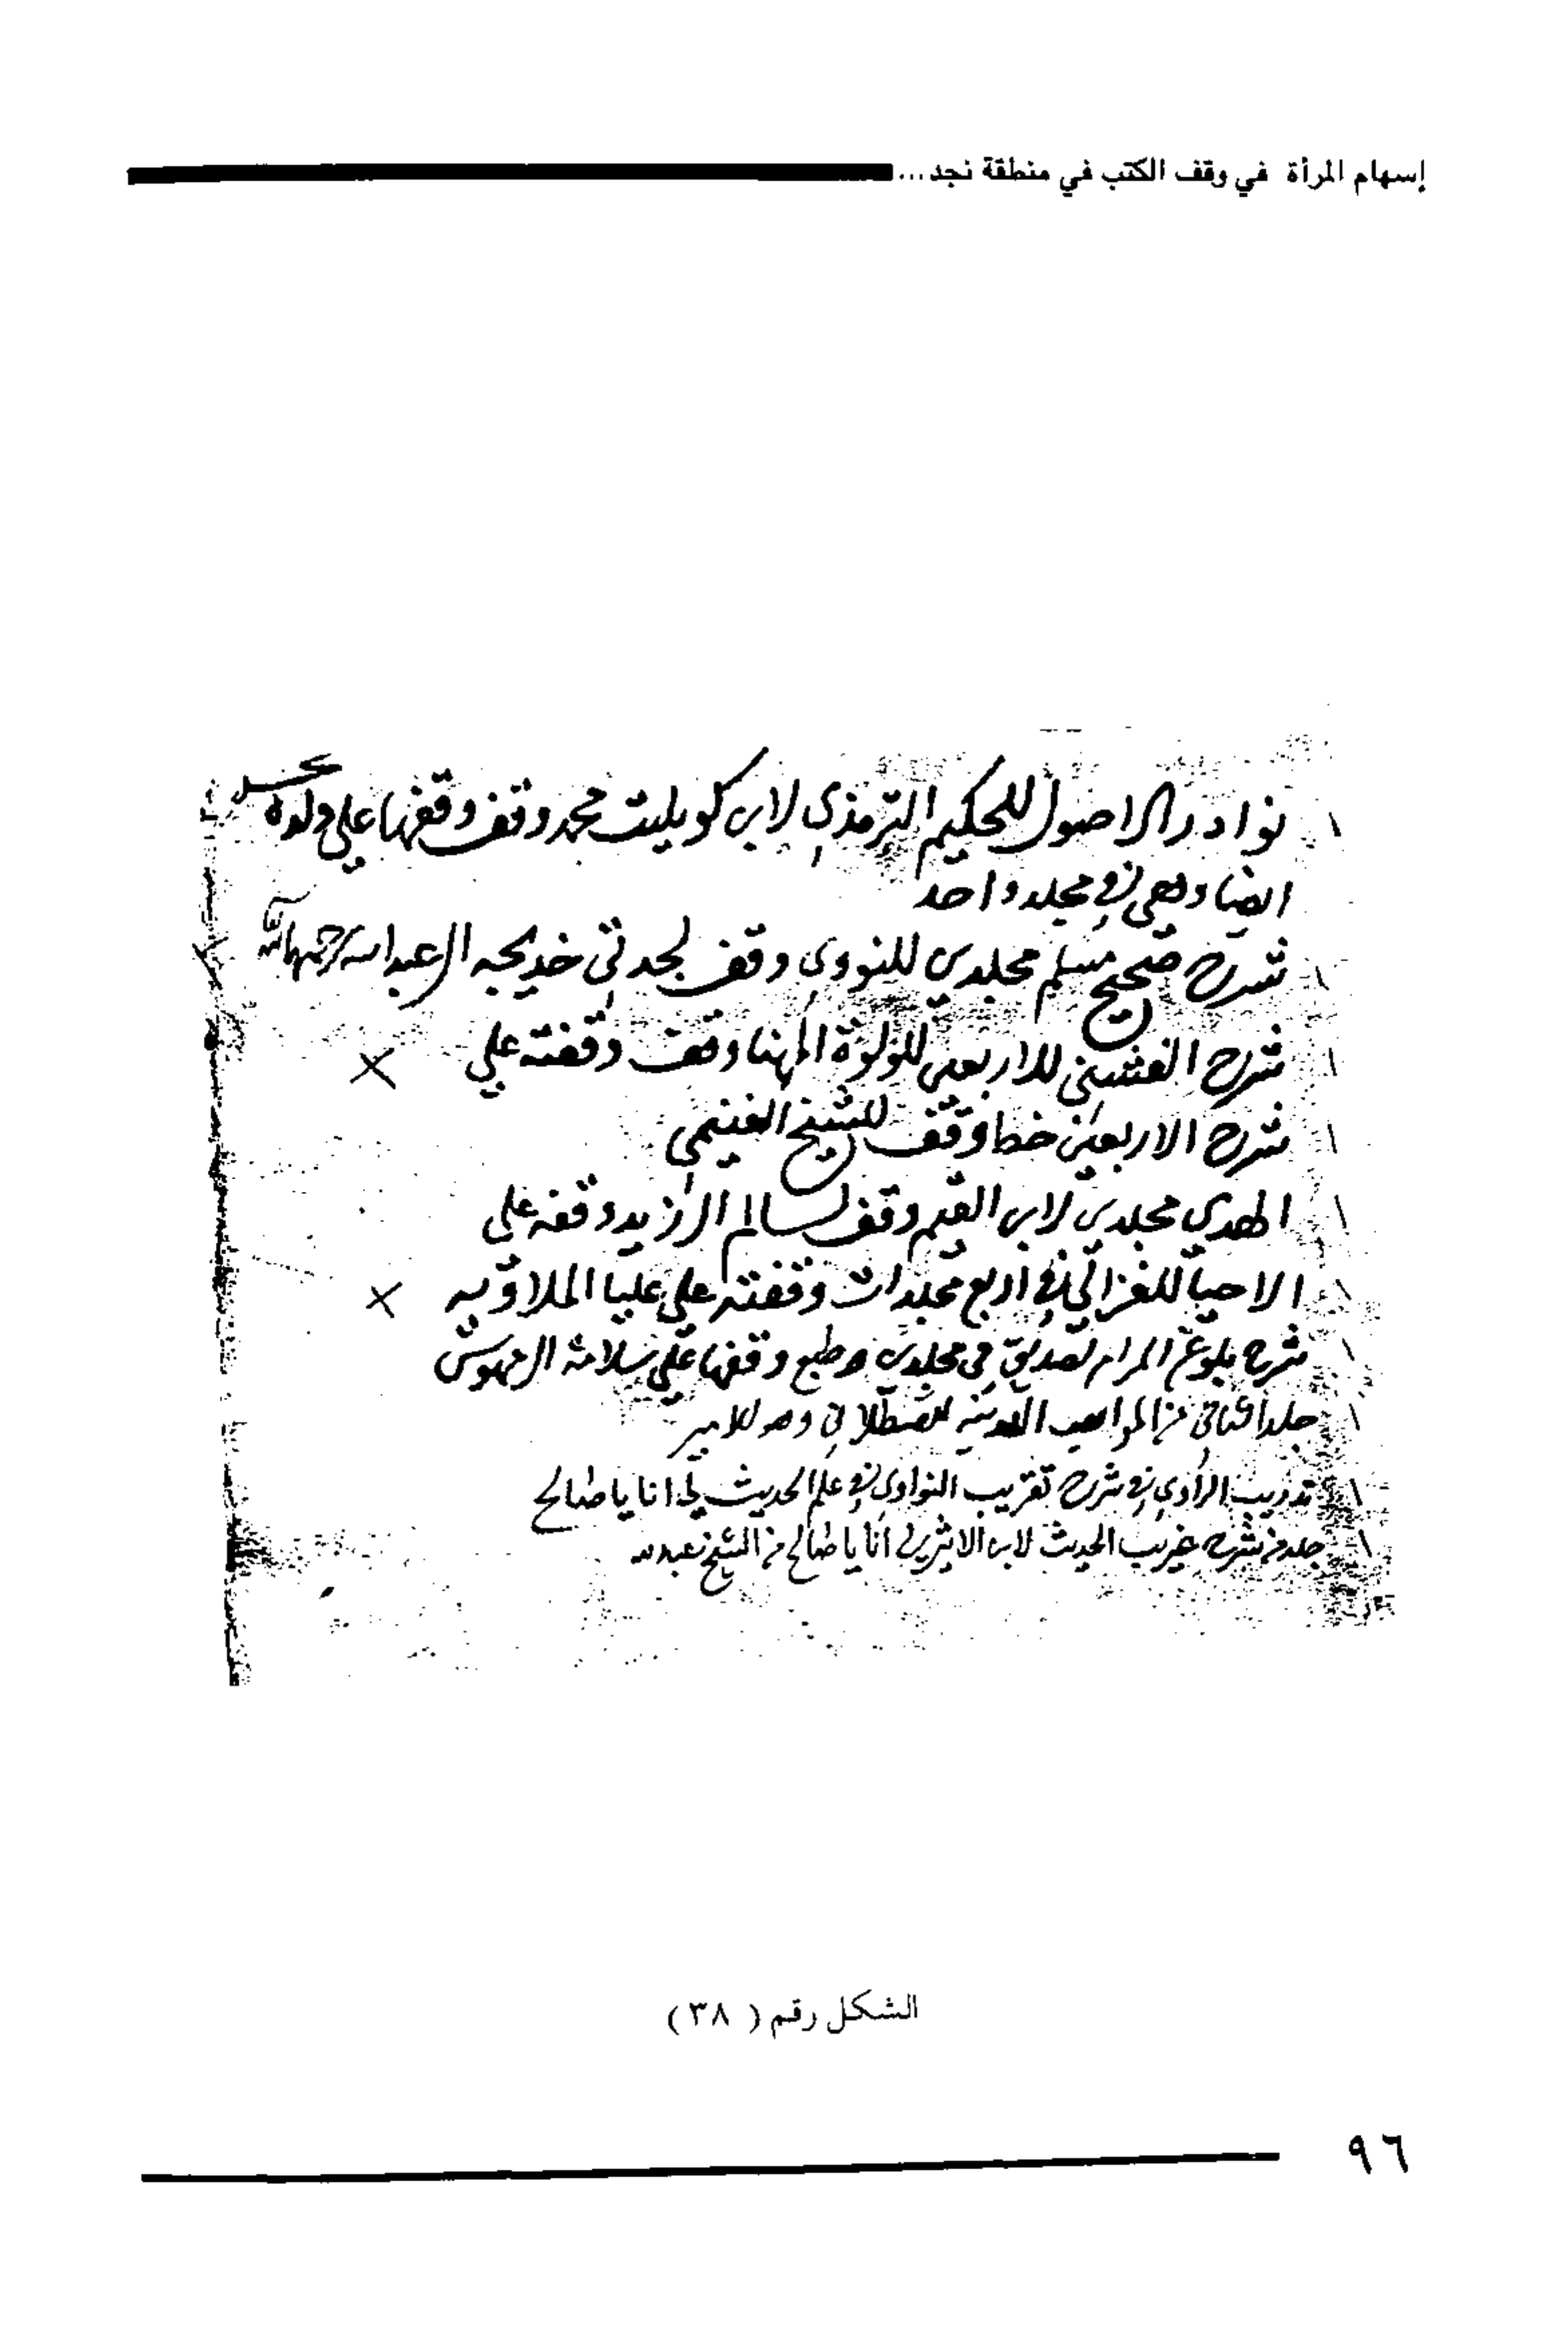 إسهام المرأة في وقف الكتب في منطقة نجد...
١ نوادر الاصول للحكيم الترمذي لابن كويليت محمد وقف وقفها علي ولده
ايضا وهي في مجلد واحد
١ شرح صحيح مسلم مجلدين للنووي وقف لجدتي خديجه ال عبدالله رحمها الله
١ شرح الفشني للاربعين للولوة المهنا وقف وقفته علي
١ شرح الاربعين خط وقف للشيخ الغنيمي
١ الهدي مجلدين لابن القيم وقف لسالم الزيد وقفه على
١ الاحيا للغزالي في اربع مجلدات وقفته علي عليا الملا وقيه
١ شرح بلوغ المرام لصديق في مجلدين وطبع وقفها علي سلامة الرهوش
١ جلد الثاني من المواهب اللدنيه للقسطلاني وهو للامير
١ تدريب الراوي في شرح تقريب النواوي في علم الحديث لي انا يا صالح
١ جلد من شرح غريب الحديث لابن الاثير لي انا يا صالح من الشيخ عبدالله
الشكل رقم ( ٣٨ )
٩٦